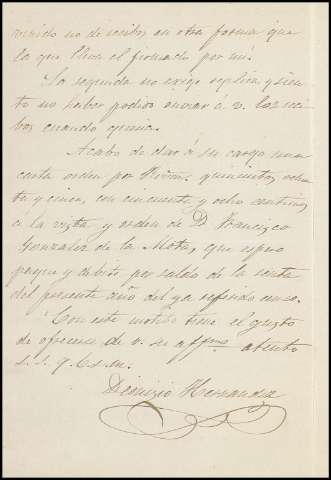 venido no de recibos en otra forma que
la que lleva el firmado por mí.
La segunda no exige replica y sien-
to no haber podido enviar á v. los reci-
bos cuando queria.
Acabo de dar á su cargo una
carta orden por quinientos ochen
ta y cinco, con cincuenta y ocho centimos
a la vista y orden de D. Francisco
Gonzalez de la Mota, que espero
pague y debite por saldo de la renta
del presente año del ya referido
Con este motivo tiene el gusto
de ofrecerse de v. su affmo. atento
s. s. q. b. s. m.
Dionizio Hernandez